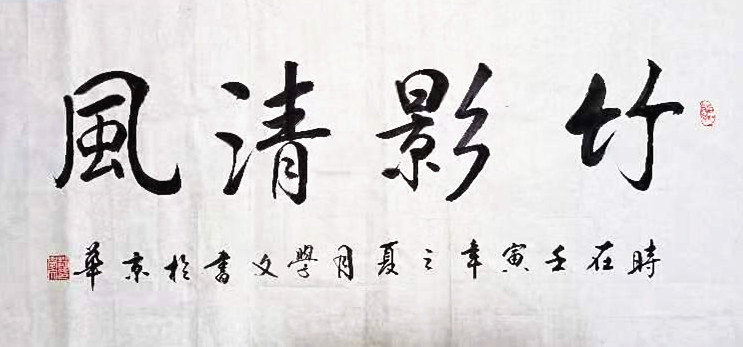 竹影清風
時在壬寅年之夏月學文書於京華